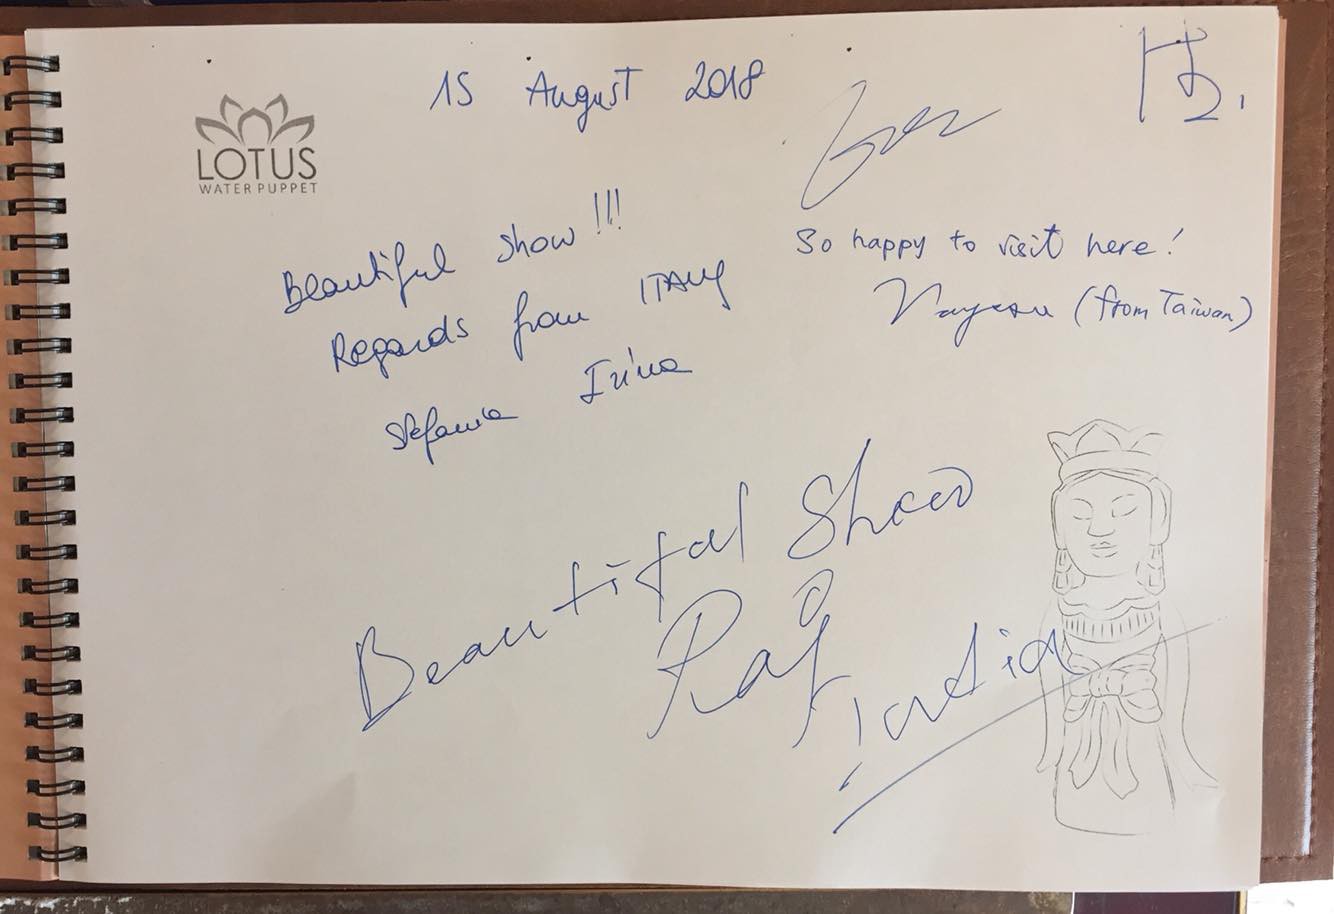 15 August 2018
LOTUS
WATER PUPPET
Beautiful show!!!
Regards from ITALY
Stefania Irina
So happy to visit here!
(from Taiwan)
Beautiful Show
Raj
india